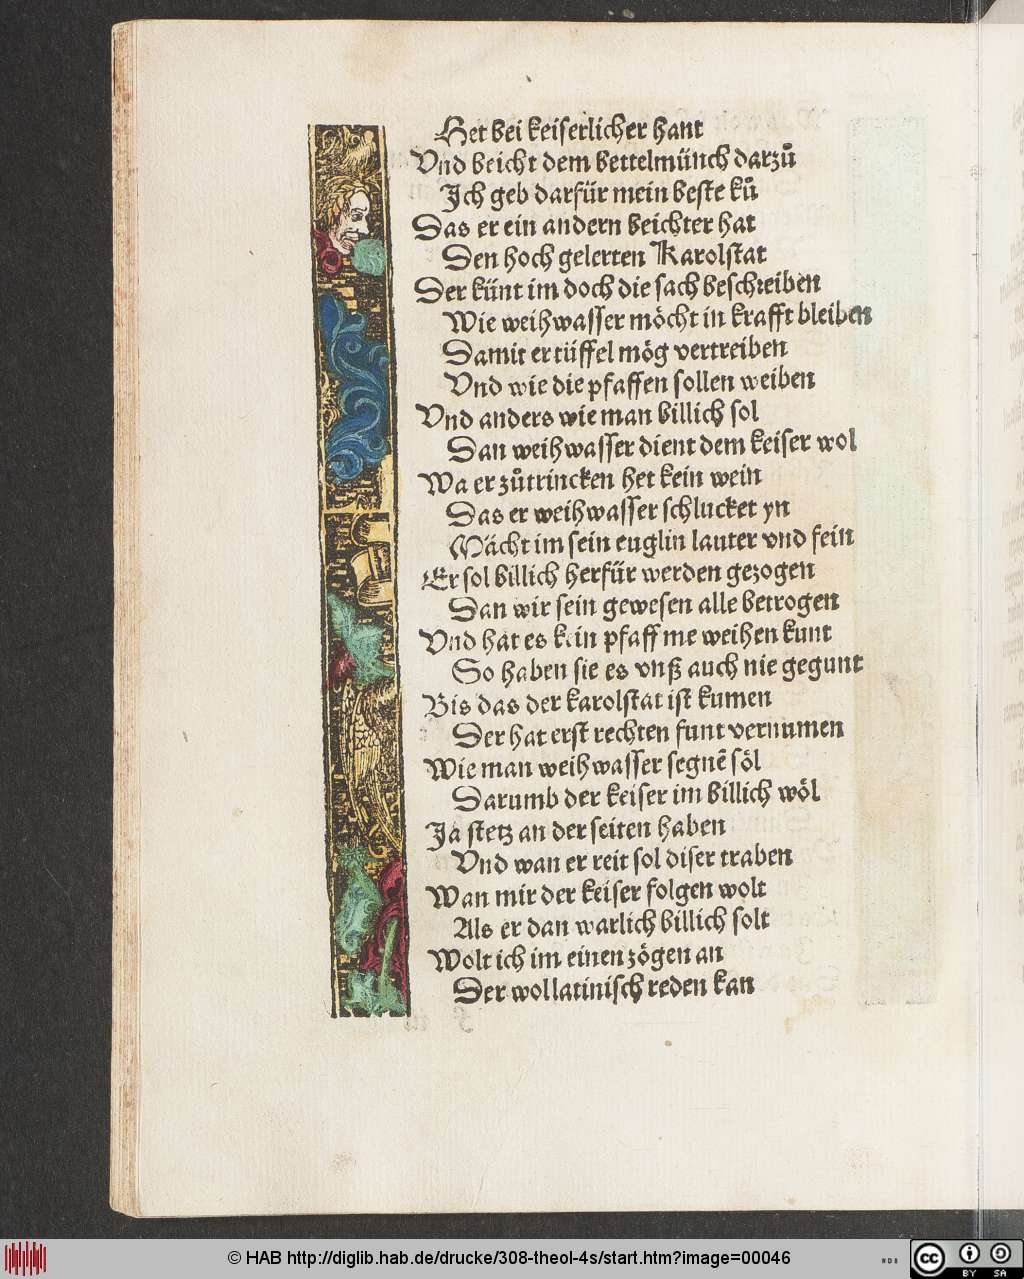 Het bei keiserlicher hant
Vnd beicht dem bettelmünch darzuͦ
Ich geb darfür mein beste kuͦ
Das er ein andern beichter hat
Den hoch gelerten Karolstat
Der künt im doch die sach beschreiben
Wie weihwasser möcht in krafft bleiben
Damit er tüffel mög vertreiben
Vnd wie die pfaffen sollen weiben
Vnd anders wie man billich sol
Dan weihwasser dient dem keiser wol
Wa er zuͦtrincken het kein wein
Das er weihwasser schlucket yn
Mächt im sein euglin lauter vnd fein
Er sol billich herfür werden gezogen
Dan wir sein gewesen alle betrogen
Vnd hat es kein pfaff me weihen kunt
So haben sie es vnß auch nie gegunt
Bis das der karolstat ist kumen
Der hat erst rechten funt vernumen
Wie man weihwasser segnē söl
Darumb der keiser im billich wöl
Ja stetz an der seiten haben
Vnd wan er reit sol diser traben
Wan mir der keiser folgen wolt
Als er dan warlich billich solt
Wolt ich im einen zögen an
Der wol latinisch reden kan
© HAB http://diglib.hab.de/drucke/308-theol-4s/start.htm?image=00046
WDB
CC BY SA